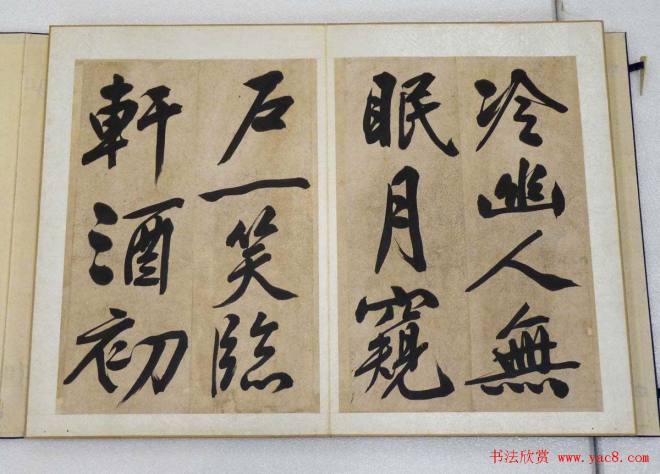 冷幽人無
眠月窺
户一笑臨
軒酒初
书法欣赏 www.yac8.com